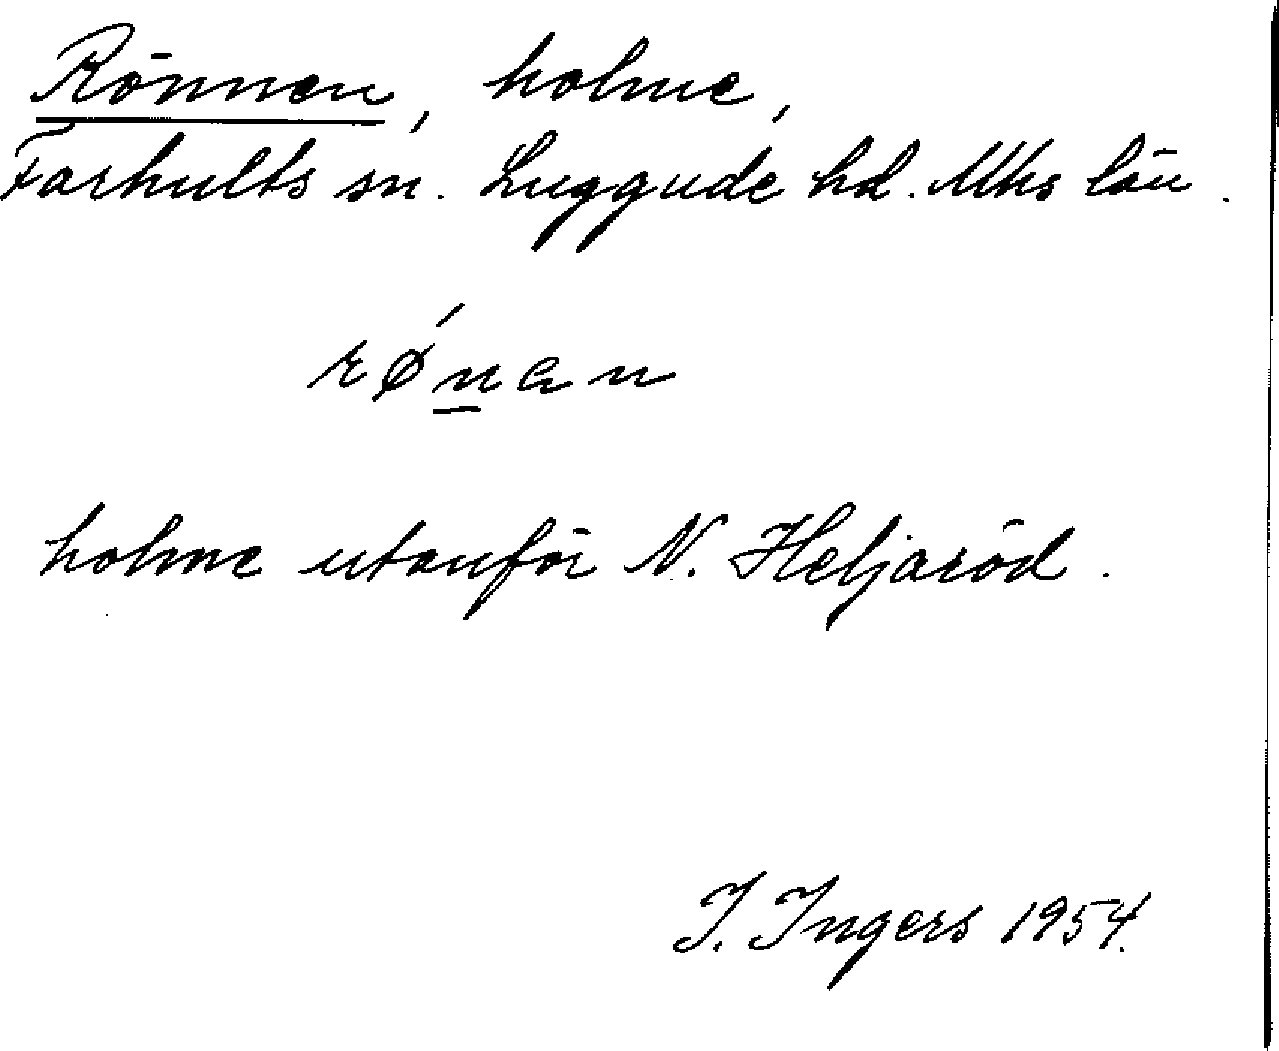 Rönnen, holme,
Farhults sn. Luggude hd. Mhs län.
rǿn̲an
holme utanför N. Heljaröd.
I. Ingers 1954.